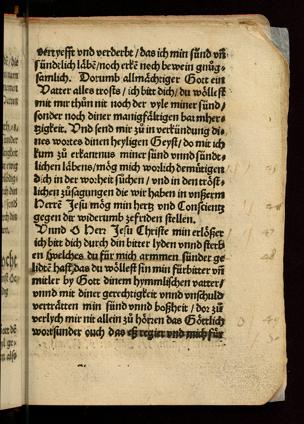 vertyefft vnd verderbt / das ich min sünd vñ
sündtlich läbẽ / noch erkẽ noch bewein gnůg⸗
samlich. Dorumb allmächtiger Gott ein
Vatter alles trosts / ich bitt dich / du wöllest
mit mir thůn nit noch der vyle miner sünd /
sonder noch diner manigfältigen barmher⸗
tzigkeit. Vnd send mir zů in verkündung di⸗
nes wortes dinen heyligen Geyst / do mit ich
kum zů erkantnus miner sünd vnnd sündt⸗
lichen läbens / mög mich worlich demütigen
dich in der worheit sůchen / vnd in den tröst⸗
lichen zůsagungen die wir haben in vnserm
Herrẽ Jesu mög min hertz vnd Conscientz
gegen dir widerumb zefriden stellen.
Vnnd O Herr Jesu Christe min erlößer
ich bitt dich durch din bitter lyden vnnd sterb
en / welches du für mich armmen sünder ge
lidtẽ hast / das du wöllest sin min fürbitter vñ
mitler by Gott dinem hymmlischen vatter /
vnnd mit diner gerechtigkeit vnnd vnschuld
verträtten min sünd vnnd boßheit / dor zů
verlych mir nit allein zů hörẽn das Göttlich
wort / sunder ouch das eß regier vnd mich für